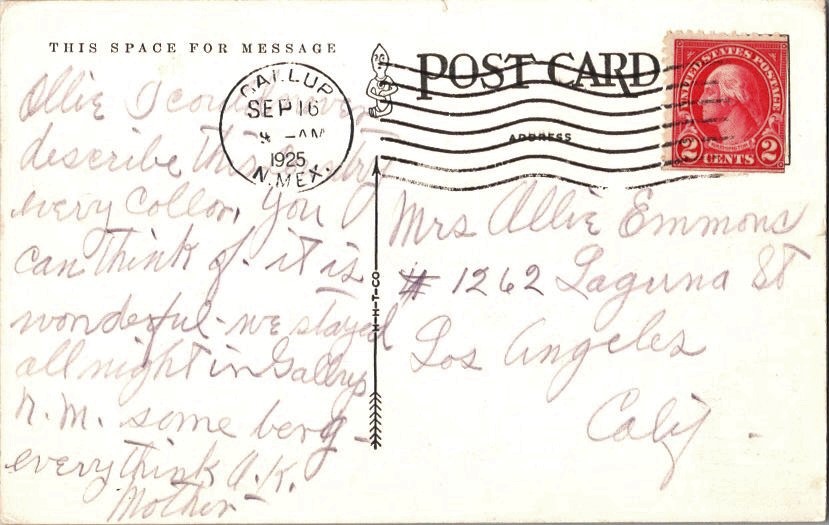 THIS SPACE FOR MESSAGE
POST CARD
ADDRESS
GALLUP
SEP 16
-AM
1925
N.MEX.
UNITED STATES POSTAGE
2 CENTS 2
H-H-T-CO
Ollie I could
describe this
every Collor, you
can think of. it is
wonderful - we stayed
all night in Gallup
N.M. some berg -
everythink O.K.
Mother
Mrs Ollie Emmons
# 1262 Laguna St
Los Angeles
Calif -